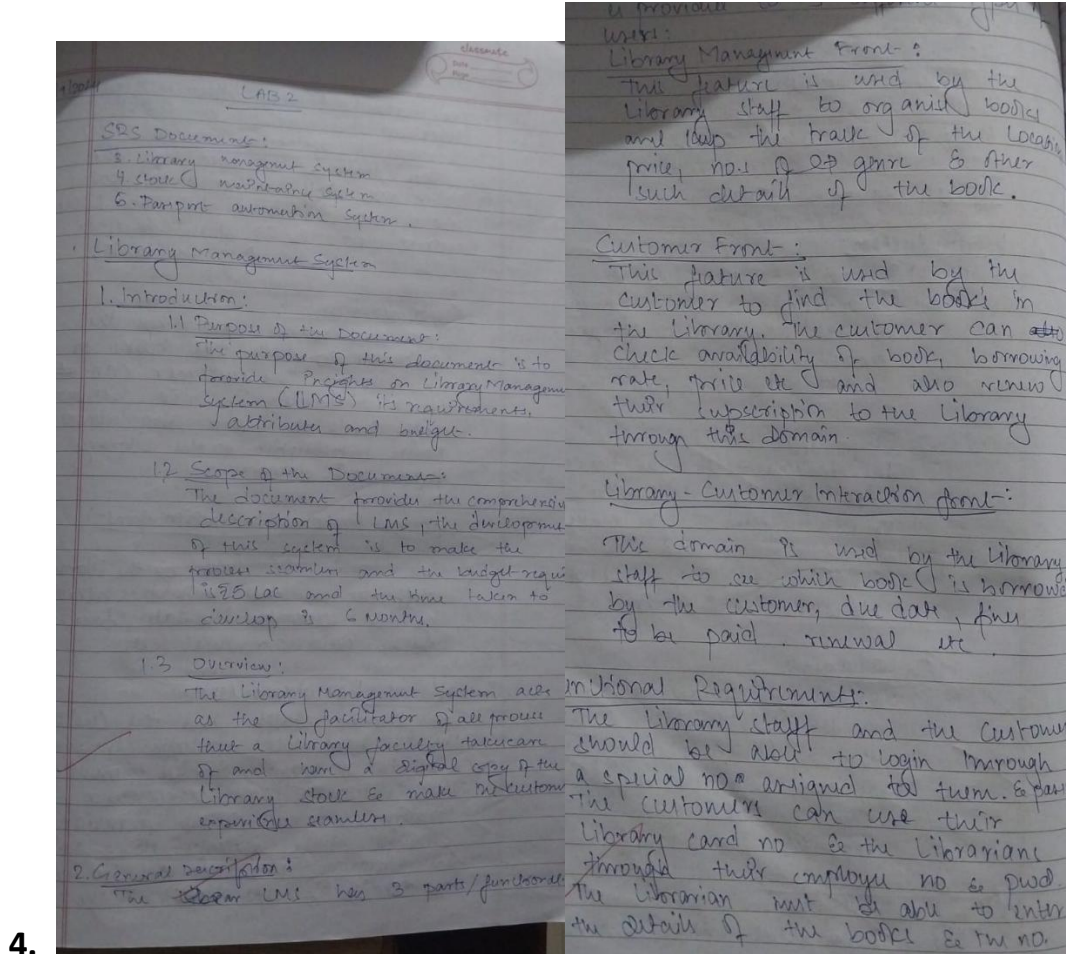 4.
classmate
Date
Page
LAB 2
SRS Document:
3. Library management system
4. Stock maintaince system
5. Passport automation system.
Library Management System
1. Introduction:
1.1 Purpose of the Document:
The purpose of this document is to
provide Insights on Library Manageme
system (LMS) its requirements,
attributes and
1.2 Scope of the Document:
The document provides the comprehensiv
description of LMS, the developme
of this system is to make the
process seamless and the budget requi
is ₹5 Lac and the time taken to
develop is 6 Months.
1.3 Overview:
The Library Management System acts
as the facilitator of all process
that a Library faculty takecare
of and have a digital copy of the
Library stock & make the custom
experience seamless.
2. General Description:
The LMS has 3 parts/functional
users:
Library Managment Front:
This feature is used by the
Library staff to organise books
and keep the track of the Locatio
price, no.s of genre & other
such details of the book.
Customer Front:
This feature is used by the
customer to find the books in
the Library. The customer can
check availability of book, borrowing
rate, price etc and also renew
their subscription to the Library
through this Domain.
Library-Customer Interaction front:
This domain is used by the Library
staff to see which book is borrowe
by the customer, due date, fines
to be paid, renewal etc.
nctional Requirements:
The Library staff and the Custome
should be able to login through
a special no. assigned to them. & pass
The customers can use their
Library card no & the Librarians
through their employee no & pwd.
The Librarian must be able to enter
the details of the books & the no.